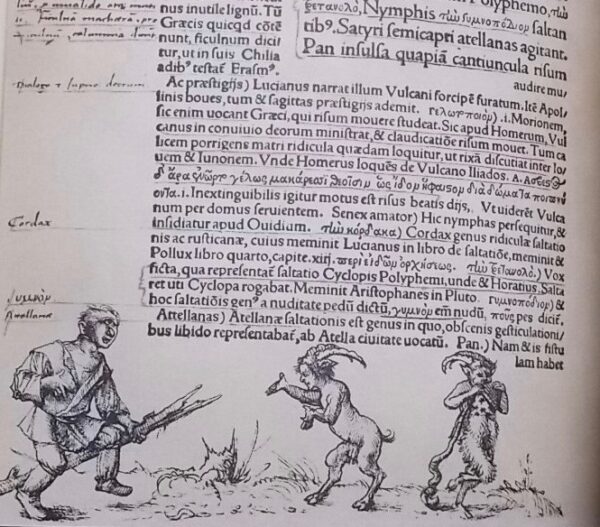 nus inutile lignũ. Tũ
Græcis quicqd cõtē
nunt, ficulnum dicit
tur, ut in suis Chilia
adib⁹ testat̃ Erasm⁹.
Polyphemo, τὸμ
τρετανολό, Nymphis τὼμ γυμνοπόδιομ saltan
tib⁹. Satyri semicapri atellanas agitant.
Pan insulsa quapiã cantiuncula risum
audire mu/
Ac præstigijs) Lucianus narrat illum Vulcani forcipē furatum. Itē Apol/
linis boues, tum & sagittas præstigijs ademit. γελωτοποιὸμ) .i. Morionem,
sic enim uocant Græci, qui risum mouere studeat. Sic apud Homerum, Vul
canus in conuiuio deorum ministrat, & claudicatiõe risum mouet. Tum ca
licem porrigens matri ridicula quædam loquitur, ut rixã discutiat inter Io/
uem & Iunonem. Vnde Homerus loquēs de Vulcano Iliados. Α. Ἄσβεϛ
δ' ἄρα ἐνῶρτο γέλως μακάρεσσι θεοῖσιμ ὡς ἴδομ ἥφαιϛομ διὰ δώματα ποιπνύ
οντα .i. Inextinguibilis igitur motus est risus beatis dijs, Vt uiderēt Vulca
num per domus seruientem. Senex amator) Hic nymphas persequitur, &
insidiatur apud Ouidium. τὼμ κόρδακα) Cordax genus ridiculæ saltatio
nis ac rusticanæ, cuius meminit Lucianus in libro de saltatiõe, meminit &
Pollux libro quarto, capite .xiiij. περὶ εἰδῶμ ὀρχήσεως. τὼμ τρετανολό.) Vox
ficta, qua repræsentat̃ saltatio Cyclopis Polyphemi, unde & Horatius. Salta
ret uti Cyclopa rogabat. Meminit Aristophanes in Pluto. γυμνοπόδιομ) &
hoc saltatiõis gen⁹ a nuditate pedũ dictũ, γυμνὸμ em̃ nudũ, ποῦς pes dicit̃.
Attellanas) Atellanæ saltationis est genus in quo, obscenis gesticulationi/
bus libido repræsentabat̃, ab Atella ciuitate uocatũ. Pan.) Nam & is fistu
lam habet
Cordax
γυμνὸμ
Atellanæ